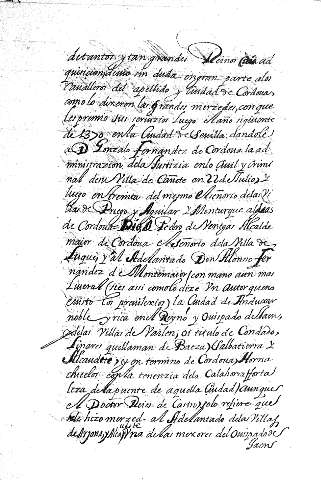 de tantos y tan grandes Reinos
quisicion devio sin duda en gran parte a los
Cavalleros del apellido y Ciudad de Cordoua
como lo dixeron las grandes mercedes, con que
les premio sus servicios luego el año siguiente
de 1370 en la Ciudad de Sevilla dandole
a D. Gonzalo Fernandez de Cordoua la ad
ministracion de la Justicia en lo Civil y Crimi
nal de su Villa de Cañete en 22 de Julio y
luego en treinta del mesmo el Señorio de las Vi
llas de Priego y Aguilar y Monturque
de Cordoua Dio a Pedro de Venegas Alcalde
maior de Cordoua el Señorio de la Villa de
Luque y al Adelantado Don Alonso Fer
nandez de Montemaior con mano aun mas
Liveral (si es asi como lo dize un Autor que na
escrito los privilexios) la Ciudad de Anduxar
noble y rica en el Reyno y Ovispado de Jaen,
y de las Villas de Vailen, con titulo de Condado,
Linares que llaman de Baeza y Salbatierra y
Alcaudete y en termino de Cordoua Horna
chuelos con la tenenzia de la Calahorra forta
leza de la puente de aquella Ciudad aunque
el Doctor Ruiz de Castro solo refiere que
se hizo merced al Adelantado de la Villa
de Arjona, de las mexores del Ovispado de
Jaen